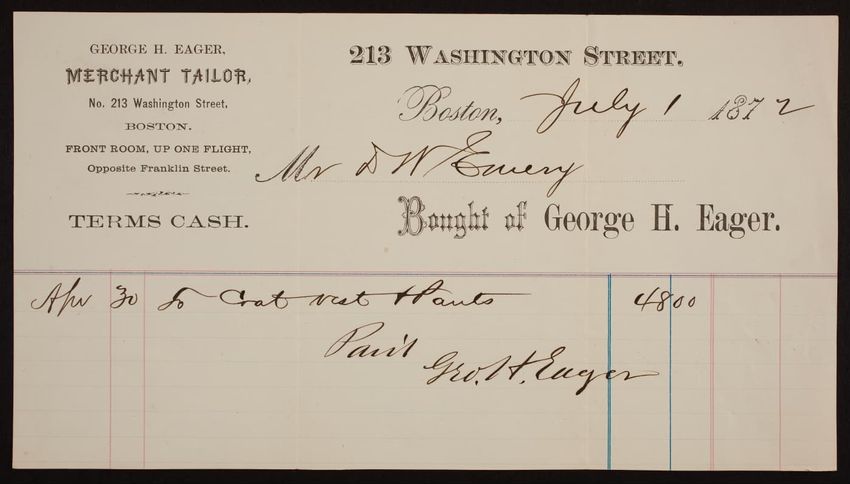 GEORGE H. EAGER,
MERCHANT TAILOR,
No. 213 Washington Street,
BOSTON.
FRONT ROOM, UP ONE FLIGHT,
Opposite Franklin Street.
TERMS CASH.
213 WASHINGTON STREET.
Boston, July 1 1872
Mr D W Emery
Bought of George H. Eager.
Apr 30 To Coat vest & Pants 48 00
Paid
Geo. H. Eager